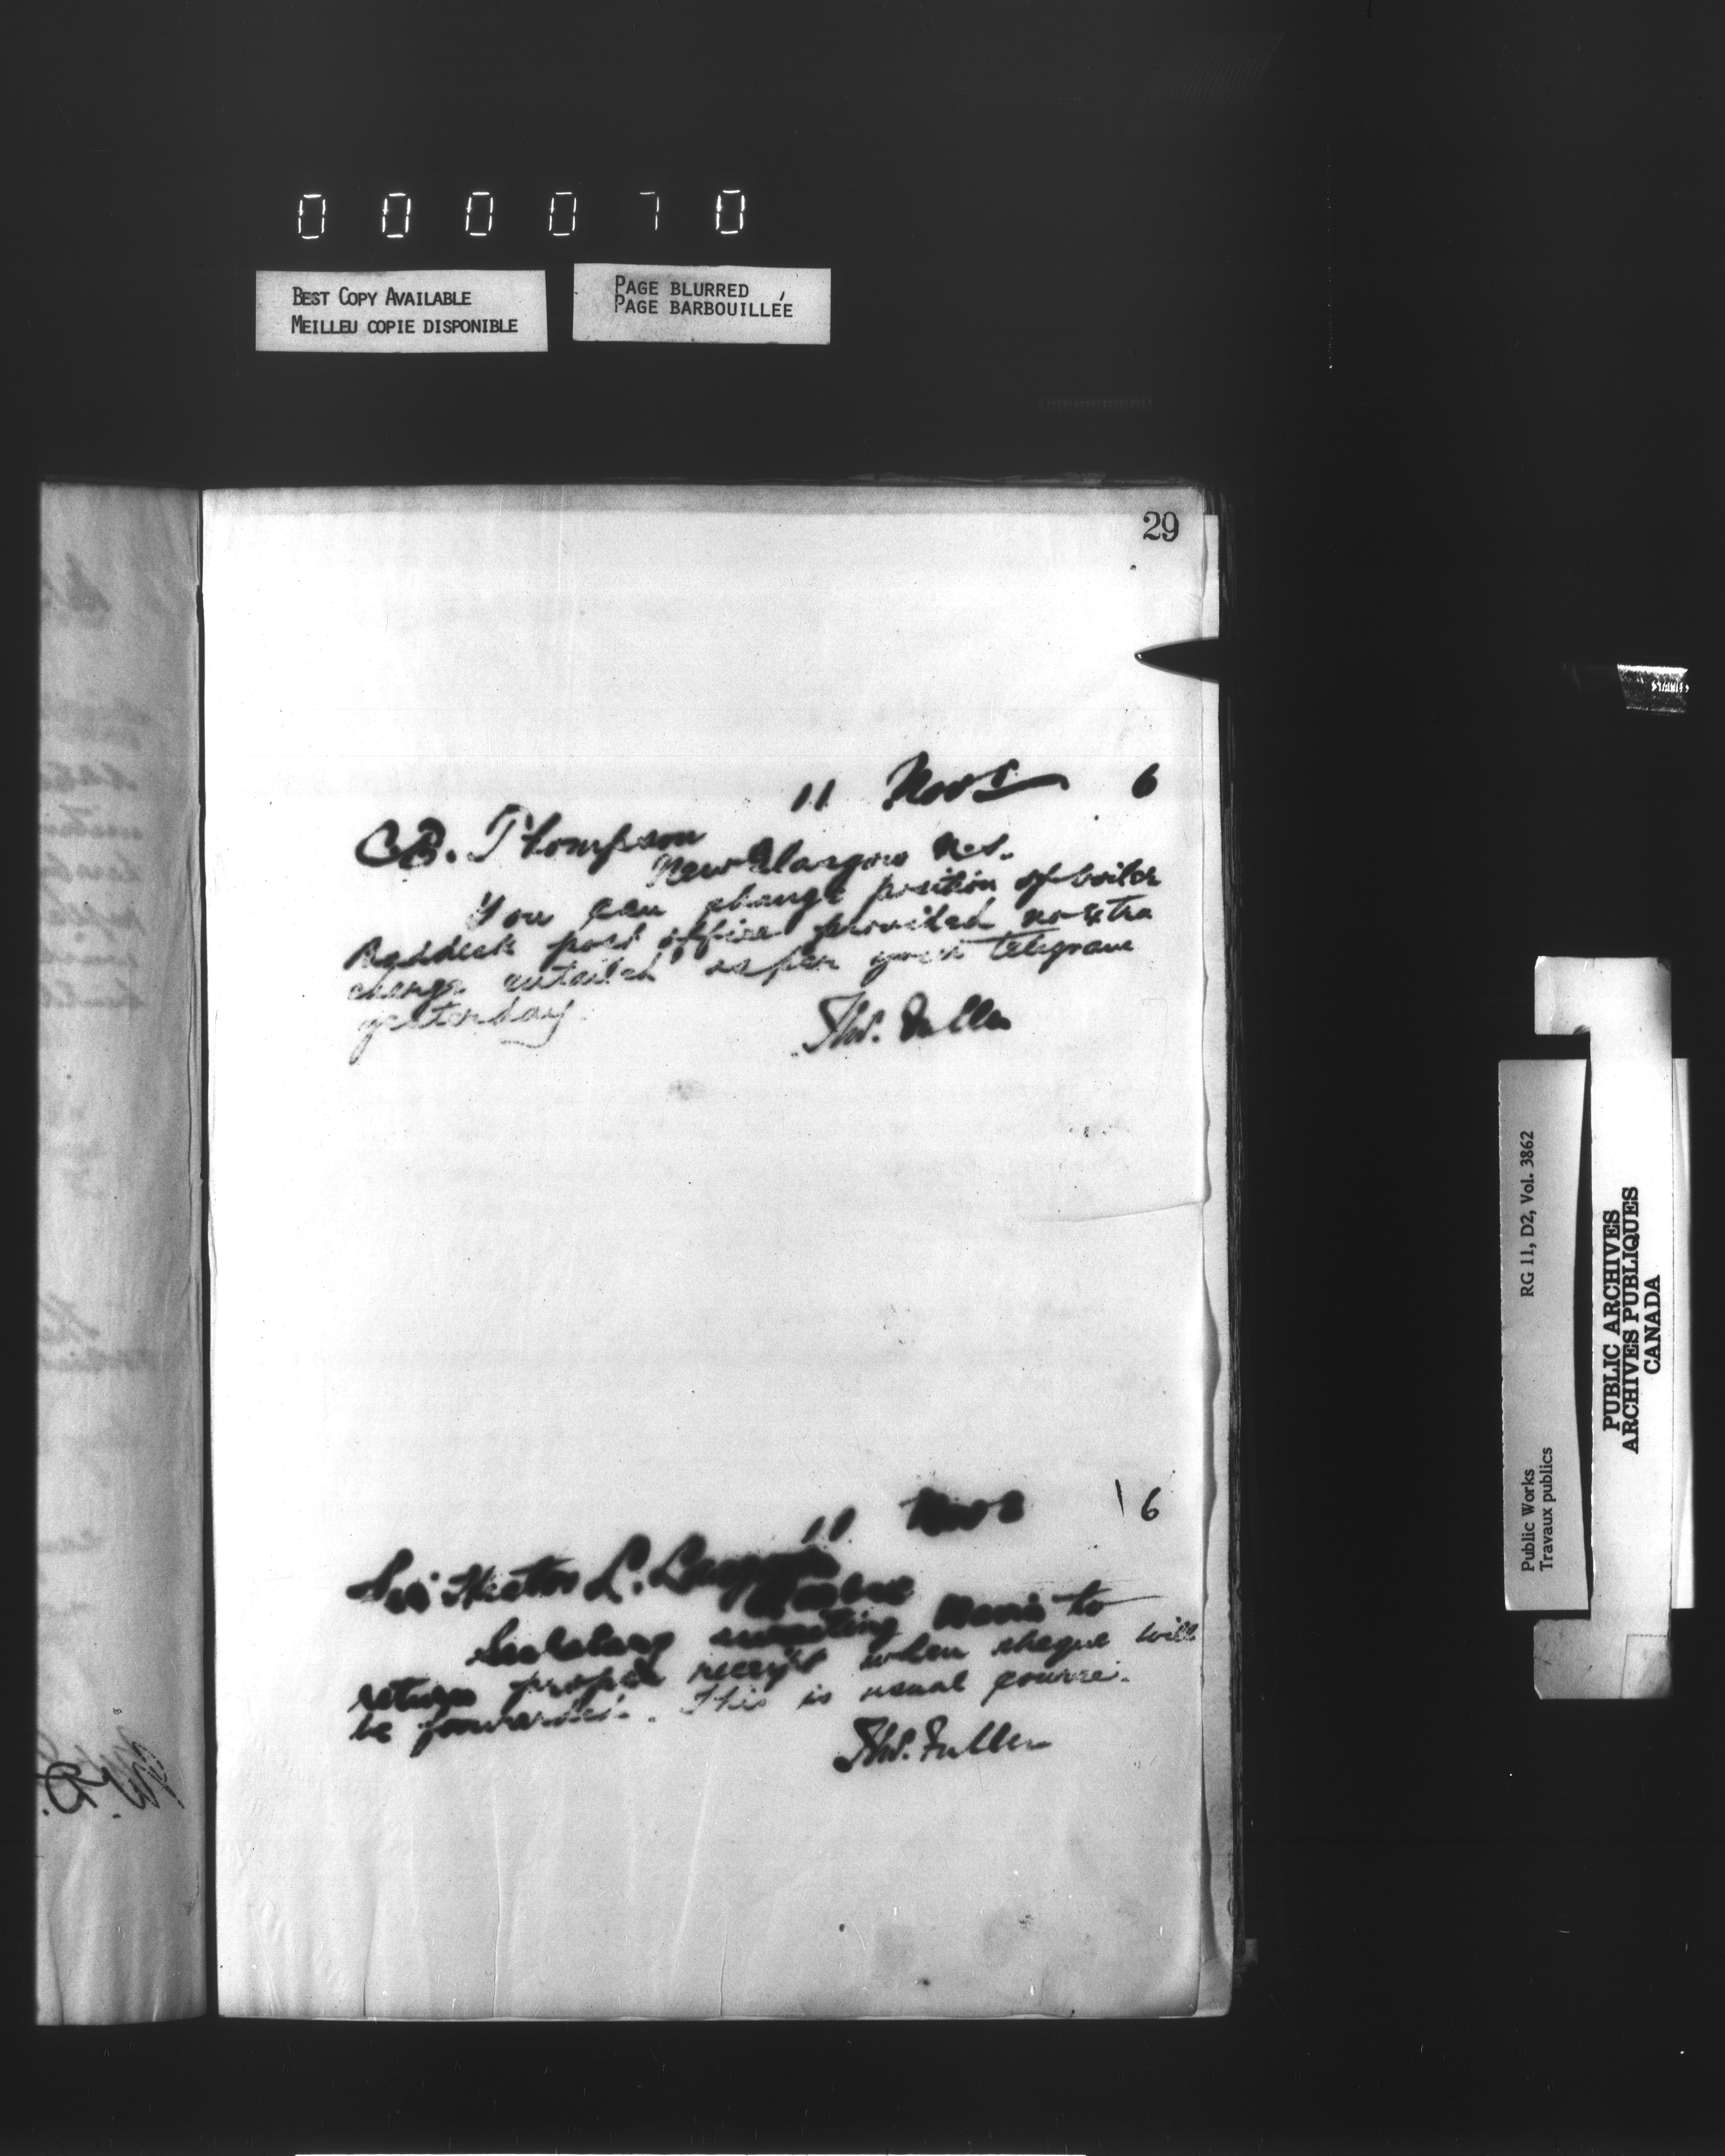 000070
BEST COPY AVAILABLE
MEILLEU COPIE DISPONIBLE
PAGE BLURRED
PAGE BARBOUILLÉE
29
11 Novr 6
C.B. Thompson
New Glasgow N.S.
You can change position of boiler
Baddeck post office provided no extra
charge entailed as per your telegram
yesterday.
Thos. Fuller
11 Novr 6
Sir Hector L. Langevin
Quebec
Secretary awaiting to
return proper receipt when cheque will
be forwarded. This is usual course.
Thos. Fuller
Public Works
Travaux publics
RG 11, D2, Vol. 3862
PUBLIC ARCHIVES
ARCHIVES PUBLIQUES
CANADA